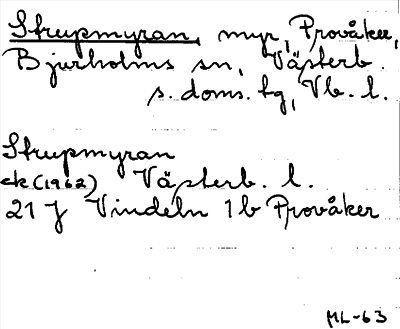 Strupmyran, myr, Provåker,
Bjurholms sn, Västerb.
s. doms. tg, Vb. l.
Strupmyran
ek (1962) Västerb. l.
21 J Vindeln 1b Provåker
ML-63